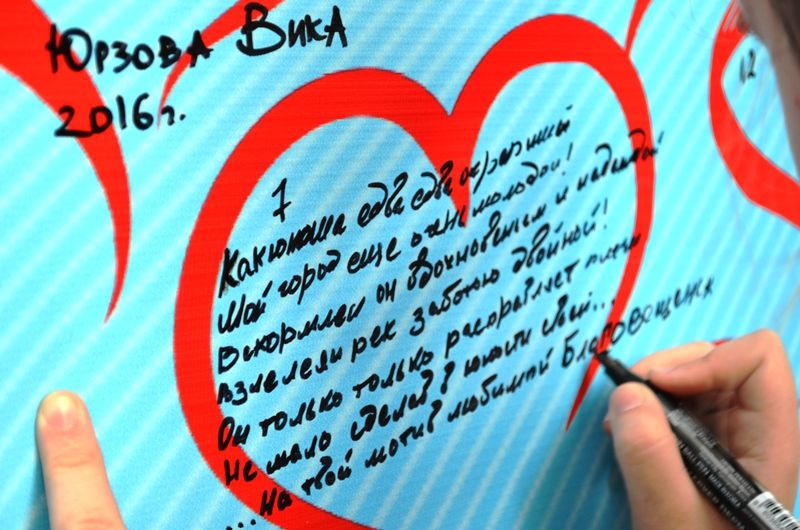 Юрзова Вика
2016г.
12
7
Как юноша едва едва окрепший
Мой город еще очень молодой!
Вскормлен он вдохновеньем и надеждой
взлелеян рек заботою двойной!
Он только только расправляет плечи
Не мало сделав в юности своей...
...На твой мотив любимой Благовещенск